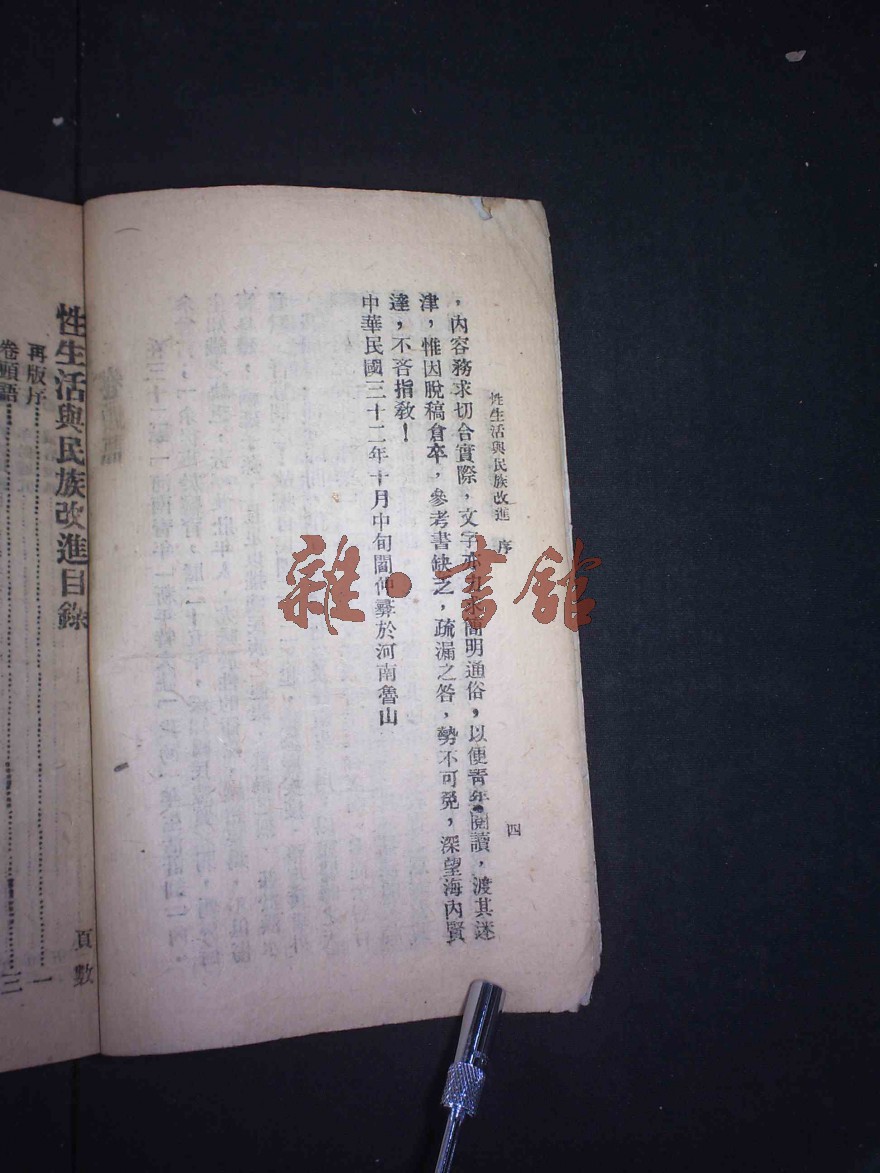 性生活與民族改進 序
四
，內容務求切合實際，文字亦力求簡明通俗，以便青年閱讀，渡其迷
津，惟因脫稿倉卒，參考書缺乏，疏漏之咎，勢不可免，深望海內賢
達，不吝指教！
中華民國三十二年十月中旬閻仲彝於河南魯山
性生活與民族改進目錄
頁數
再版序……………………一
卷頭語……………………三
雜·書館